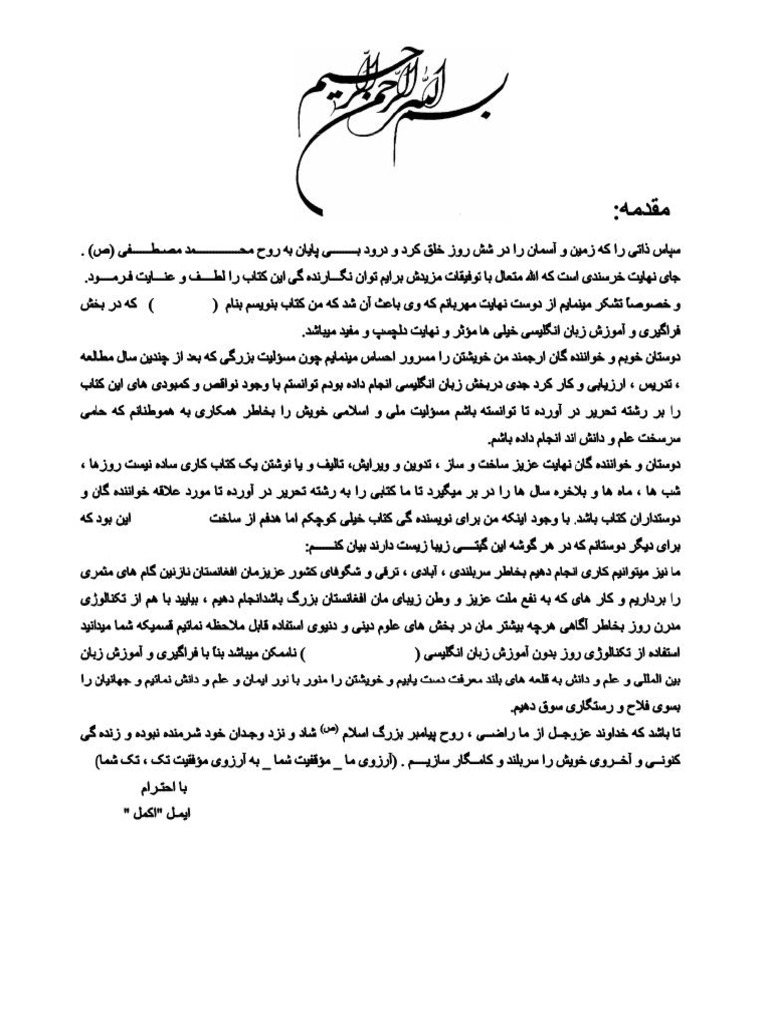 بسم الله الرحمن الرحیم
مقدمه:
سپاس ذاتی را که زمین و آسمان را در شش روز خلق کرد و درود بـــــی پایان به روح محـــــــــمد مصـطـــــفی (ص) .
جای نهایت خرسندی است که الله متعال با توفیقات مزیدش برایم توان نگـارنده گی این کتاب را لطـــف و عنـــایت فـرمـــود.
و خصوصاً تشکر مینمایم از دوست نهایت مهربانم که وی باعث آن شد که من کتاب بنویسم بنام ( ) که در بخش
فراگیری و آموزش زبان انگلیسی خیلی ها مؤثر و نهایت دلچسپ و مفید میباشد.
دوستان خوبم و خواننده گان ارجمند من خویشتن را مسرور احساس مینمایم چون مسؤلیت بزرگی که بعد از چندین سال مطالعه
، تدریس ، ارزیابی و کار کرد جدی دربخش زبان انگلیسی انجام داده بودم توانستم با وجود نواقص و کمبودی های این کتاب
را بر رشته تحریر در آورده تا توانسته باشم مسؤلیت ملی و اسلامی خویش را بخاطر همکاری به هموطنانم که حامی
سرسخت علم و دانش اند انجام داده باشم.
دوستان و خواننده گان نهایت عزیز ساخت و ساز ، تدوین و ویرایش، تالیف و یا نوشتن یک کتاب کاری ساده نیست روزها ،
شب ها ، ماه ها و بلاخره سال ها را در بر میگیرد تا ما کتابی را به رشته تحریر در آورده تا مورد علاقه خواننده گان و
دوستداران کتاب باشد. با وجود اینکه من برای نویسنده گی کتاب خیلی کوچکم اما هدفم از ساخت این بود که
برای دیگر دوستانم که در هر گوشه این گیتـــی زیبا زیست دارند بیان کنـــــم:
ما نیز میتوانیم کاری انجام دهیم بخاطر سربلندی ، آبادی ، ترقی و شگوفای کشور عزیزمان افغانستان نازنین گام های مثمری
را برداریم و کار های که به نفع ملت عزیز و وطن زیبای مان افغانستان بزرگ باشدانجام دهیم ، بیایید با هم از تکنالوژی
مدرن روز بخاطر آگاهی هرچه بیشتر مان در بخش های علوم دینی و دنیوی استفاده قابل ملاحظه نمائیم قسمیکه شما میدانید
استفاده از تکنالوژی روز بدون آموزش زبان انگلیسی ( ) ناممکن میباشد بنأ با فراگیری و آموزش زبان
بین المللی و علم و دانش به قلعه های بلند معرفت دست یابیم و خویشتن را منور با نور ایمان و علم و دانش نمائیم و جهانیان را
بسوی فلاح و رستگاری سوق دهیم.
تا باشد که خداوند عزوجـل از ما راضـی ، روح پیامبر بزرگ اسلام (ص) شاد و نزد وجـدان خود شرمنده نبوده و زنده گی
کنونـی و آخـروی خویش را سربلند و کامـگار سازیـــم . (آرزوی ما _ مؤفقیت شما _ به آرزوی مؤفقیت تک ، تک شما)
با احترام
ایمل "اکمل "